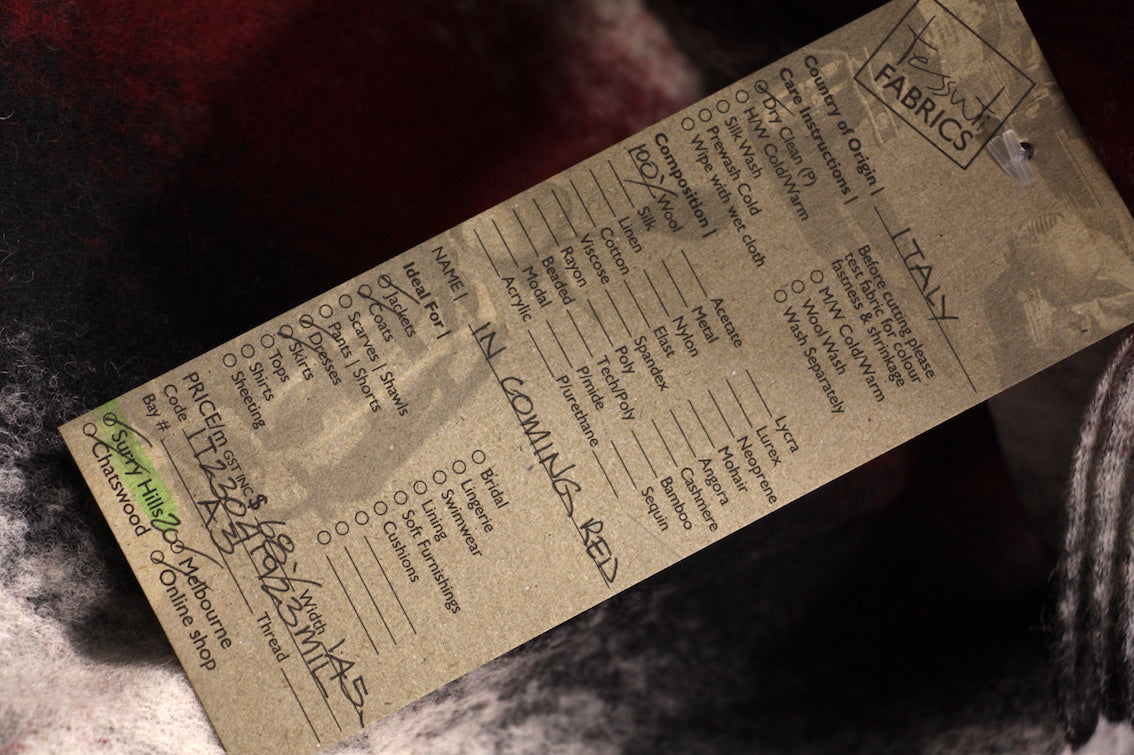 Tessuti
FABRICS
Country of Origin | ITALY
Care Instructions |
Dry Clean (P)
H/W Cold/Warm
Silk Wash
Prewash Cold
Wipe with wet cloth
Before cutting please
test fabric for colour
fastness & shrinkage
M/W Cold/Warm
Wool Wash
Wash Separately
Composition |
100% Wool
Silk
Linen
Cotton
Viscose
Rayon
Beaded
Modal
Acrylic
Acetate
Metal
Nylon
Elast
Spandex
Poly
Tech/Poly
P/mide
P/urethane
Lycra
Lurex
Neoprene
Mohair
Angora
Cashmere
Bamboo
Sequin
NAME | IN COMING RED
Ideal For |
Jackets
Coats
Scarves | Shawls
Pants | Shorts
Dresses
Skirts
Tops
Shirts
Sheeting
Bridal
Lingerie
Swimwear
Lining
Soft Furnishings
Cushions
PRICE/m GST INC $ Width 145
Code
Bay # A3 Thread
Surry Hills Melbourne
Chatswood Online shop